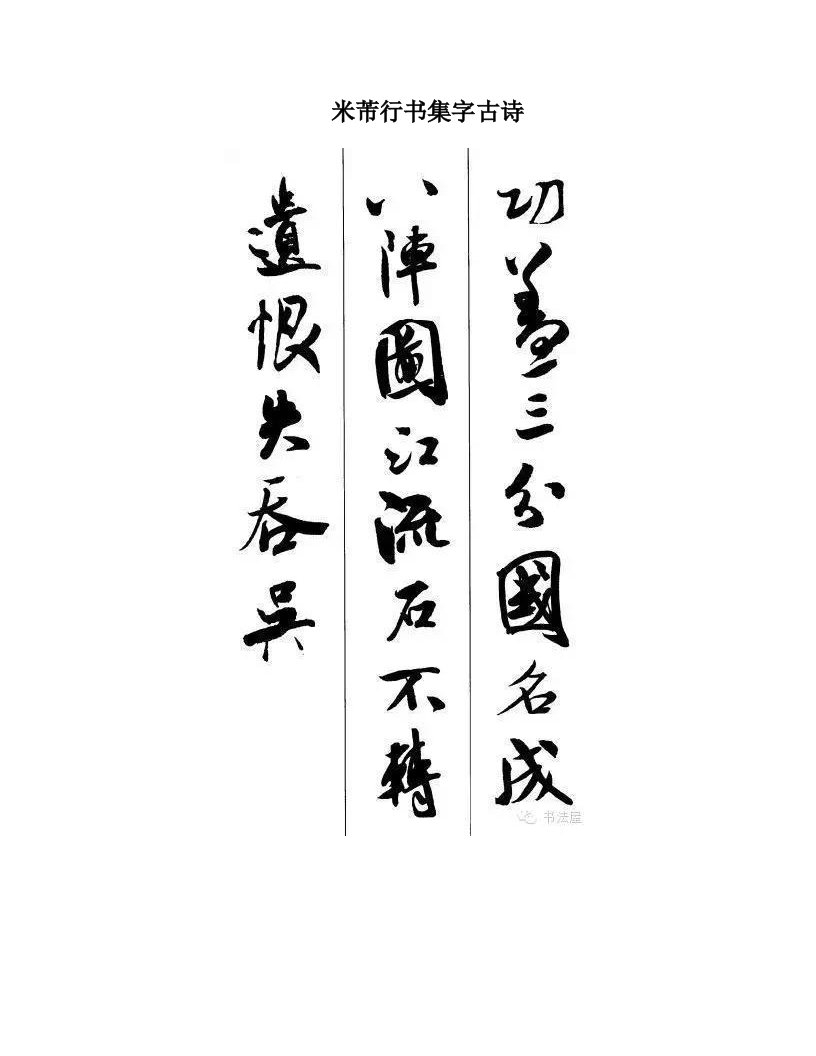 米芾行书集字古诗
功蓋三分國名成
八陣圖江流石不轉
遺恨失吞吳
书法屋